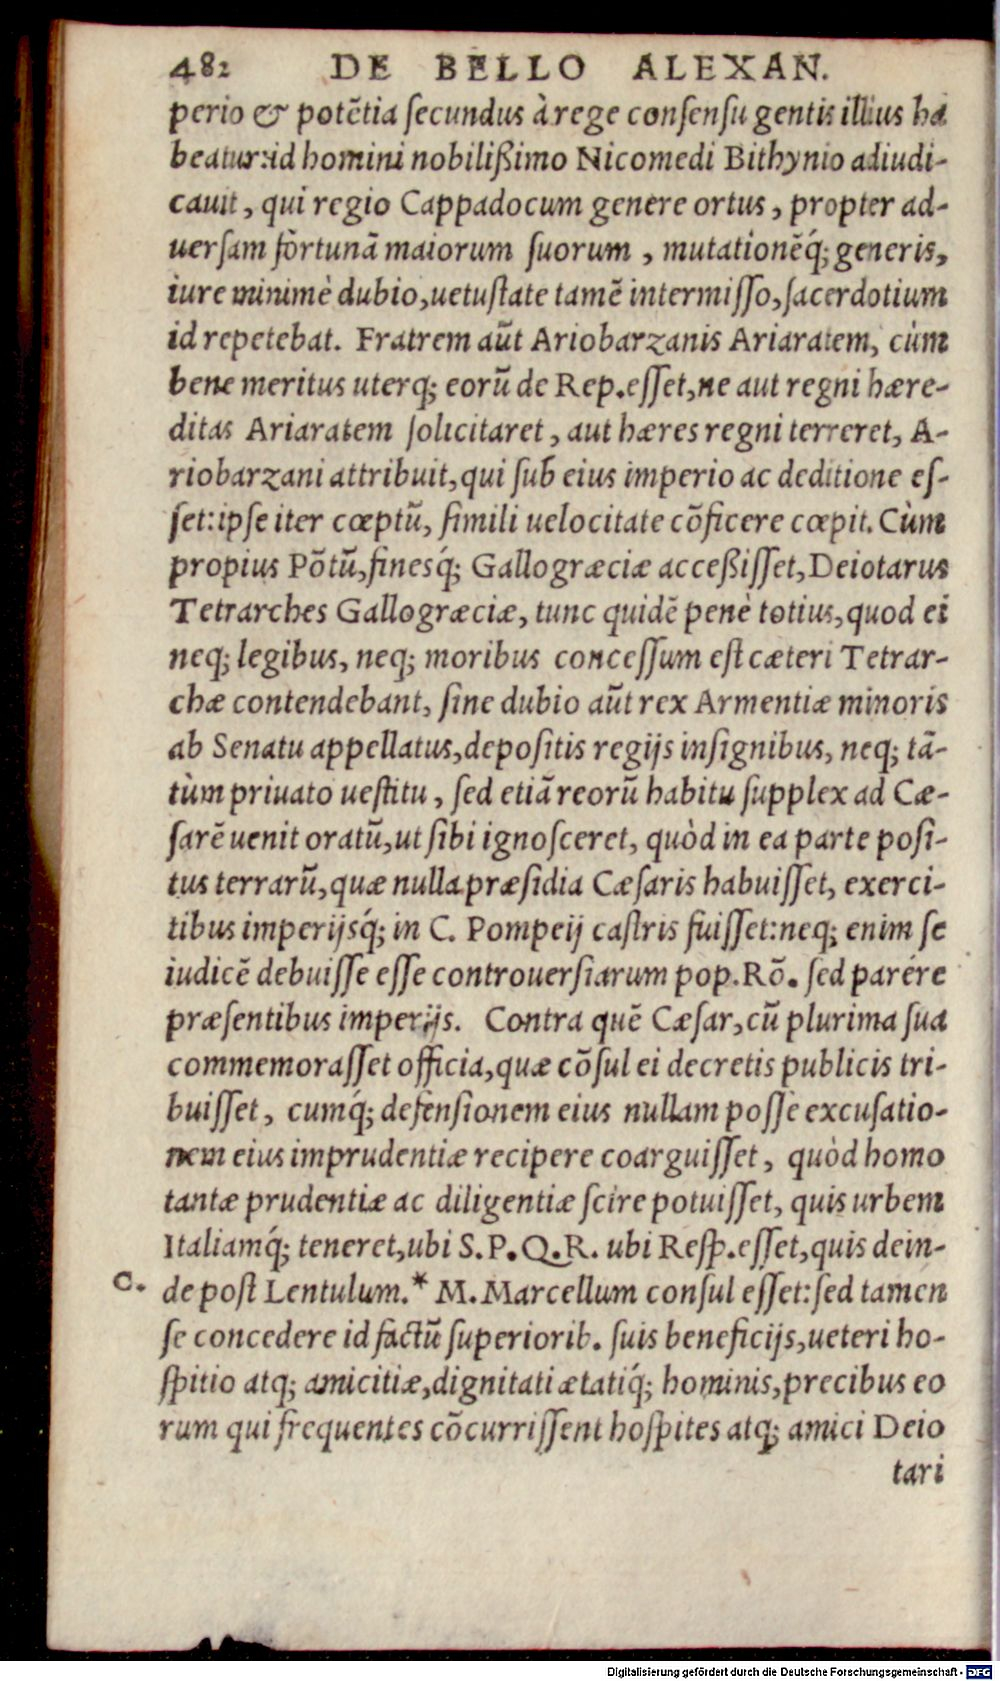 482 DE BELLO ALEXAN.
perio & potẽtia ſecundus à rege conſenſu gentis illius ha
beatur:id homini nobilißimo Nicomedi Bithynio adiudi-
cauit, qui regio Cappadocum genere ortus, propter ad-
uerſam fortunã maiorum ſuorum, mutationẽq́; generis,
iure minimè dubio,uetuſtate tamẽ intermiſſo,ſacerdotium
id repetebat. Fratrem aũt Ariobarzanis Ariaratem, cùm
bene meritus uterq; eorũ de Rep.eſſet,ne aut regni hære-
ditas Ariaratem ſolicitaret, aut hæres regni terreret, A-
riobarzani attribuit,qui ſub eius imperio ac deditione eſ-
ſet:ipſe iter cœptũ, ſimili uelocitate cõficere cœpit. Cùm
propius Põtũ,finesq́; Gallogræciæ acceßiſſet,Deiotarus
Tetrarches Gallogræciæ, tunc quidẽ penè totius,quod ei
neq; legibus, neq; moribus conceſſum eſt cæteri Tetrar-
chæ contendebant, ſine dubio aũt rex Armentiæ minoris
ab Senatu appellatus,depoſitis regijs inſignibus, neq; tã-
tùm priuato ueſtitu, ſed etiã reorũ habitu ſupplex ad Cæ-
ſarẽ uenit oratũ,ut ſibi ignoſceret, quòd in ea parte poſi-
tus terrarũ,quæ nulla præſidia Cæſaris habuiſſet, exerci-
tibus imperijsq́; in C. Pompeij caſtris fuiſſet:neq; enim ſe
iudicẽ debuiſſe eſſe controuerſiarum pop.Rõ. ſed parére
præſentibus imperijs. Contra quẽ Cæſar,cũ plurima ſua
commemoraſſet officia,quæ cõſul ei decretis publicis tri-
buiſſet, cumq́; defenſionem eius nullam poſſe excuſatio-
nem eius imprudentiæ recipere coarguiſſet, quòd homo
tantæ prudentiæ ac diligentiæ ſcire potuiſſet, quis urbem
Italiamq́; teneret,ubi S.P.Q.R. ubi Reſp.eſſet,quis dein-
C. de poſt Lentulum.* M.Marcellum conſul eſſet:ſed tamen
ſe concedere id factũ ſuperiorib. ſuis beneficijs,ueteri ho-
ſpitio atq; amicitiæ,dignitati ætatiq́; hominis,precibus eo
rum qui frequentes cõcurriſſent hoſpites atq; amici Deio
tari
Digitalisierung gefördert durch die Deutsche Forschungsgemeinschaft - DFG